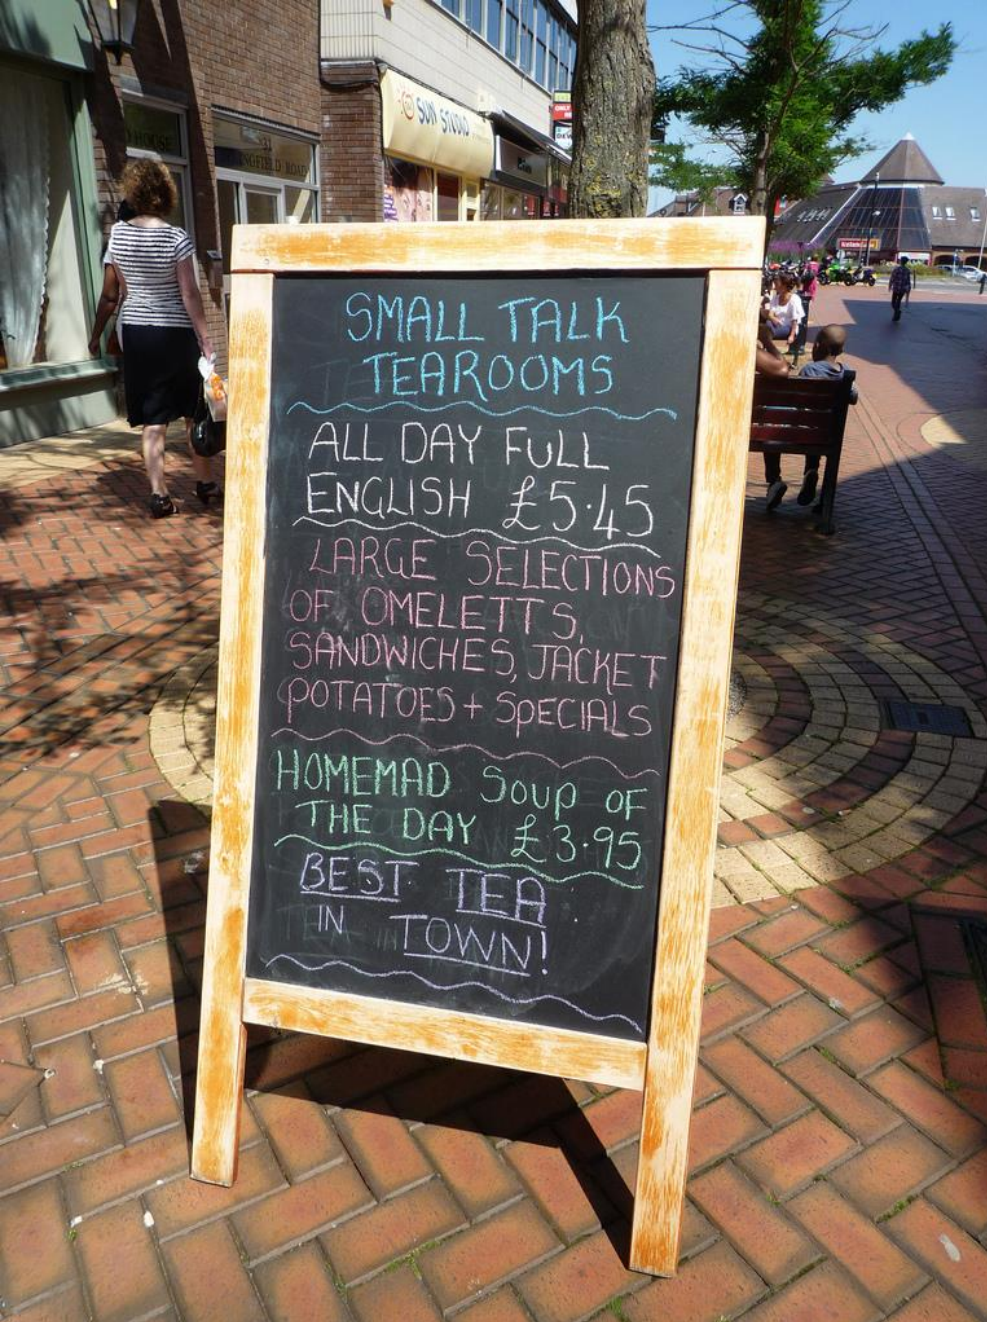 SUN STUDIO
SMALL TALK
TEAROOMS
ALL DAY FULL
ENGLISH £5.45
LARGE SELECTIONS
OF OMELETTS,
SANDWICHES, JACKET
POTATOES + SPECIALS
HOMEMAD SOUP OF
THE DAY £3.95
BEST TEA
IN TOWN!